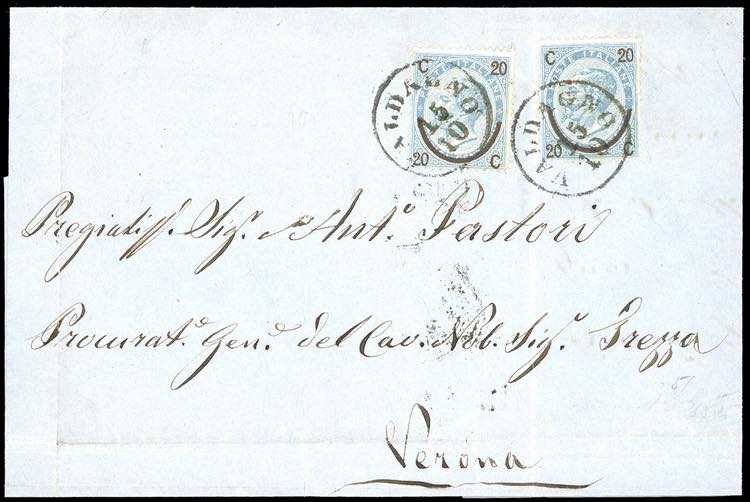 C 20
POSTE ITALIANE
20 C
VALDAGNO
15
10
C 20
POSTE ITALIANE
20 C
VALDAGNO
15
10
Pregiatiss. Sig.r Ant.o Pastori
Procurat.e Gen.e del Cav. Nob. Sig.r Grezza
Verona